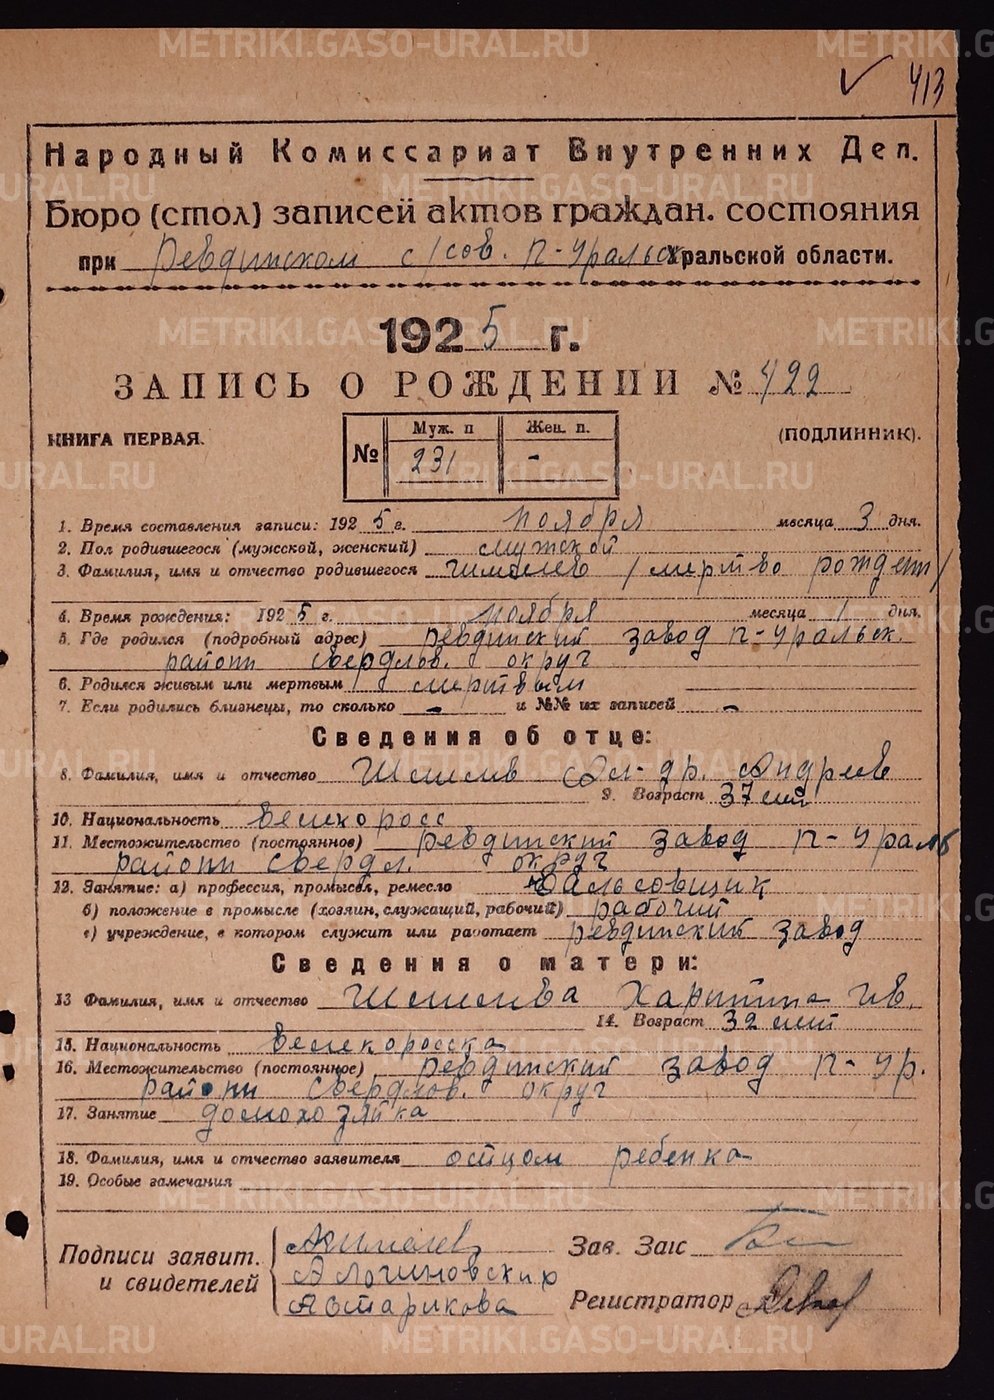 METRIKI.GASO-URAL.RU
413
Народный Комиссариат Внутренних Дел.
Бюро (стол) записей актов граждан. состояния
при Ревдинском с/сов. П-Уральск Уральской области.
1925 г.
ЗАПИСЬ О РОЖДЕНИИ № 422
КНИГА ПЕРВАЯ.
(ПОДЛИННИК).
№ Муж. п Жен. п.
231 -
1. Время составления записи: 1925 г. ноября месяца 3 дня.
2. Пол родившегося (мужской, женский) мужской
3. Фамилия, имя и отчество родившегося (мертво рожден)
4. Время рождения: 1925 г. ноября месяца 1 дня.
5. Где родился (подробный адрес) Ревдинский завод П-Уральск.
района Свердлов. округа
6. Родился живым или мертвым мертвым
7. Если родились близнецы, то сколько - и №№ их записей -
Сведения об отце:
8. Фамилия, имя и отчество Ал-др. Андреев
9. Возраст 37 лет
10. Национальность великоросс
11. Местожительство (постоянное) Ревдинский завод П-Ураль
района Свердл. округа
12. Занятие: а) профессия, промысел, ремесло вальсовщик
б) положение в промысле (хозяин, служащий, рабочий) рабочий
в) учреждение, в котором служит или работает Ревдинский завод
Сведения о матери:
13 Фамилия, имя и отчество Харитина Ив.
14. Возраст 32 лет
15. Национальность великоросска
16. Местожительство (постоянное) Ревдинский завод П-Ур.
района Свердлов. округа
17. Занятие домохозяйка
18. Фамилия, имя и отчество заявителя отцом ребенка
19. Особые замечания
Подписи заявит. и свидетелей
А Логиновских
А Старикова
Зав. Загс
Регистратор